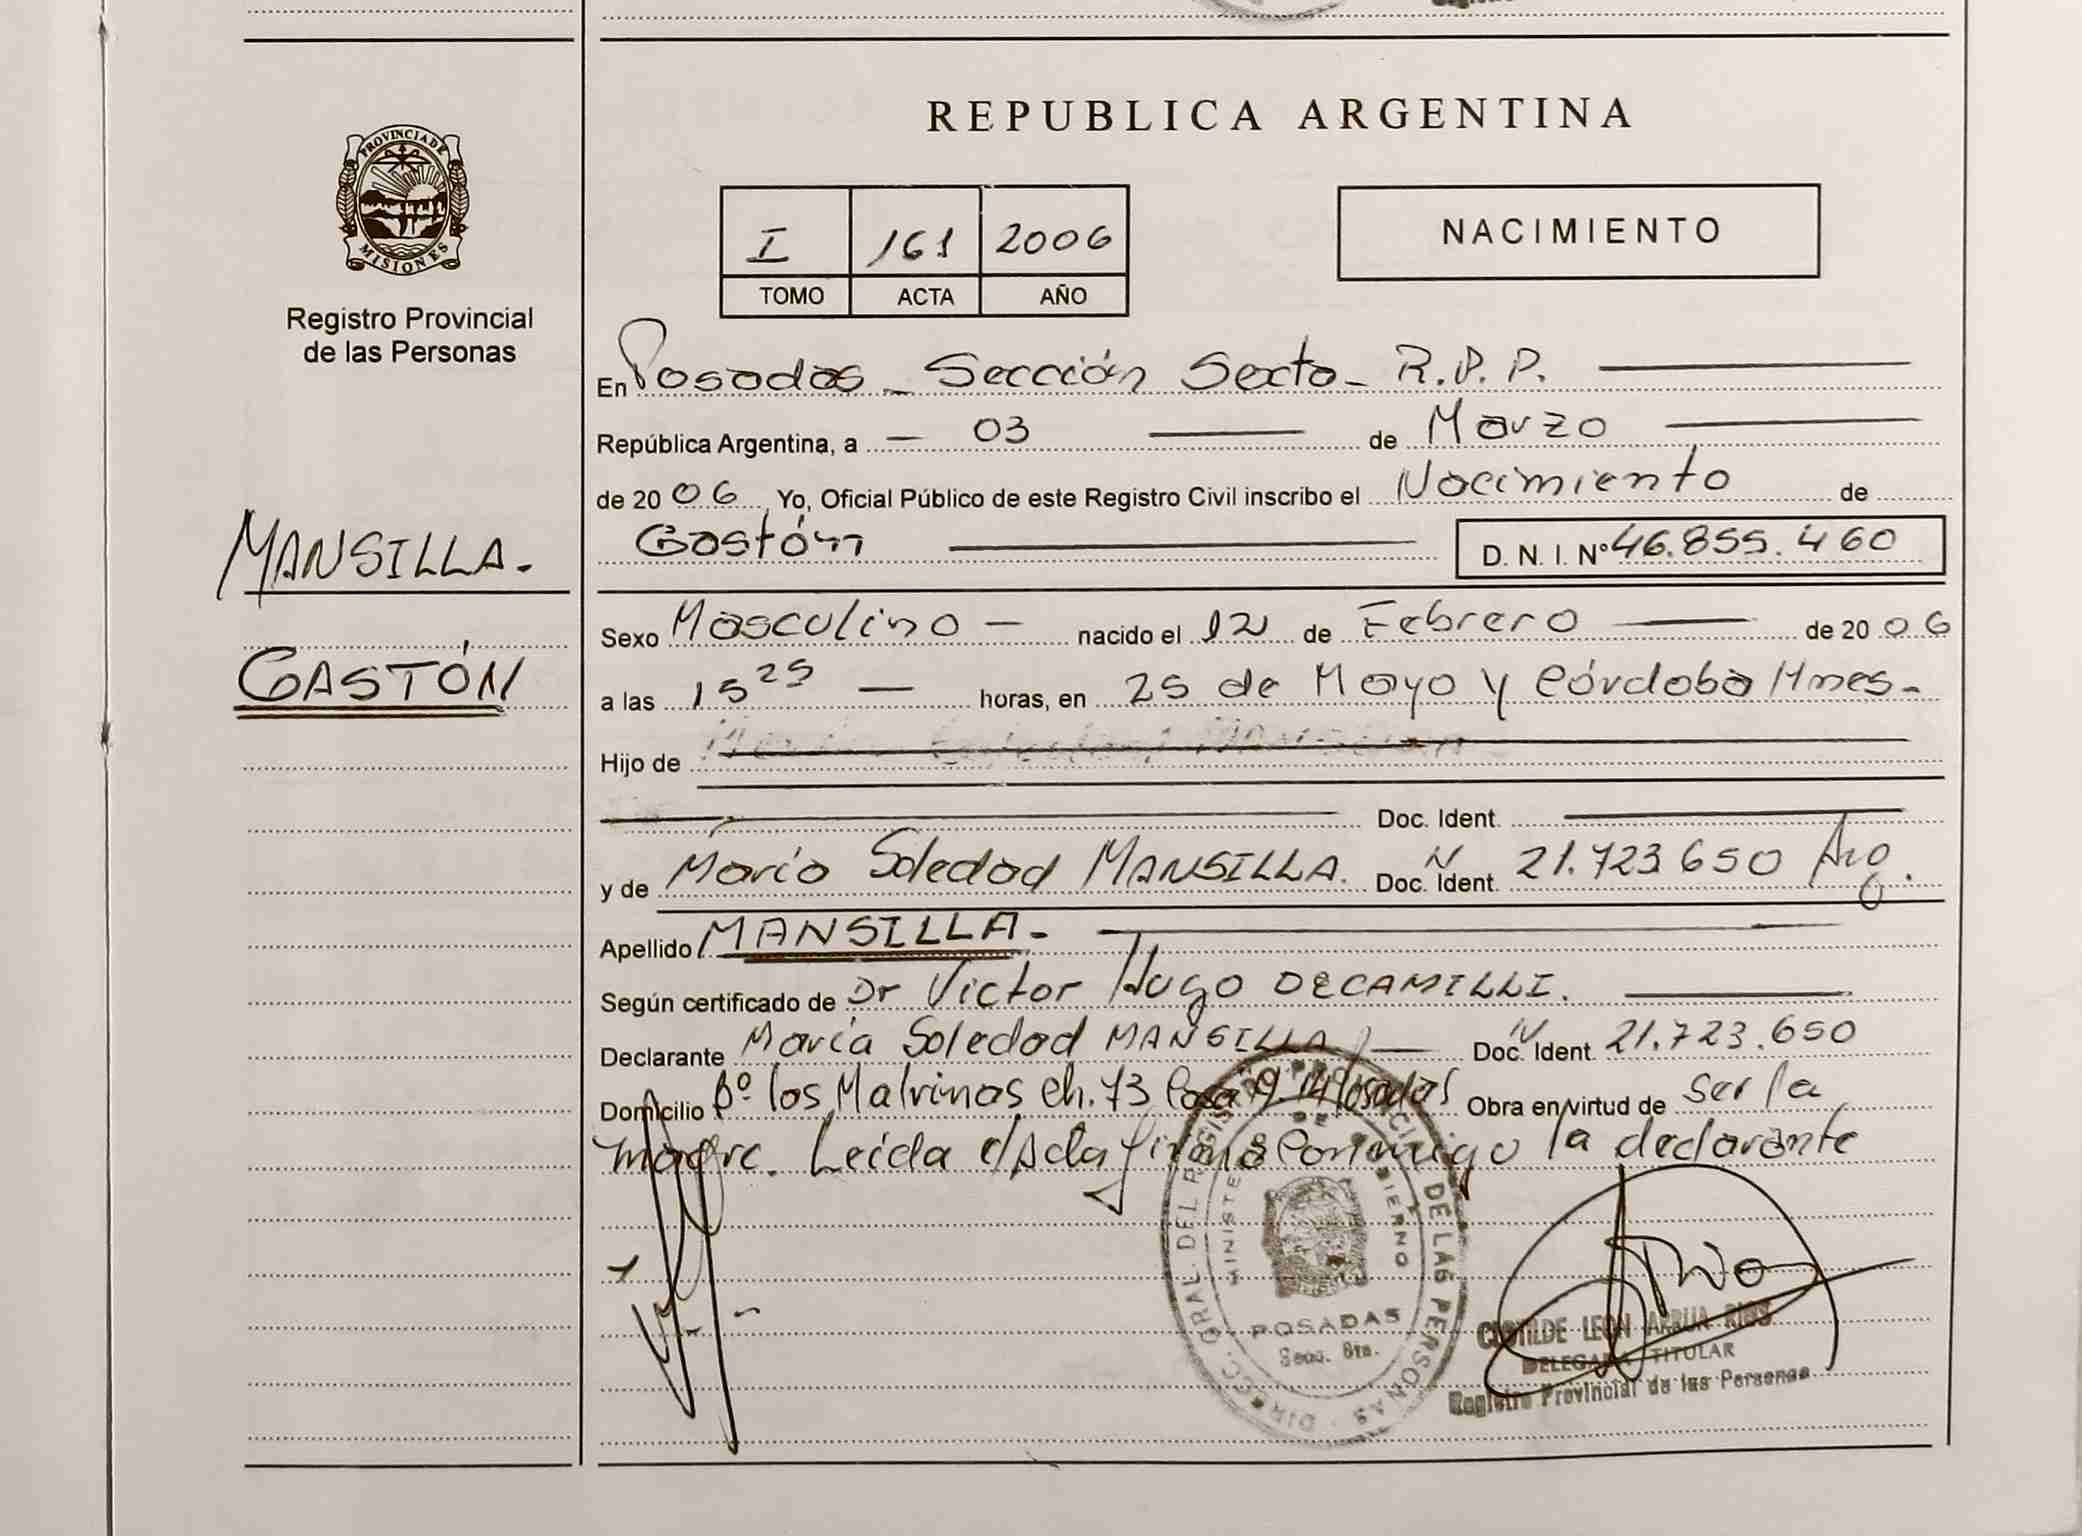 PROVINCIA DE
MISIONES
Registro Provincial
de las Personas
MANSILLA.
GASTÓN
REPUBLICA ARGENTINA
I 161 2006
TOMO ACTA AÑO
NACIMIENTO
En Posadas - Sección Sexta - R.P.P.
República Argentina, a - 03 de Marzo
de 2006, Yo, Oficial Público de este Registro Civil inscribo el Nacimiento de
Gastón D. N. I. N° 46.855.460
Sexo Masculino - nacido el 12 de Febrero de 2006
a las 15 25 - horas, en 25 de Mayo y Córdoba Mnes-
Hijo de
Doc. Ident.
y de María Soledad MANSILLA. Doc. N Ident. 21.723650 Arg.
Apellido MANSILLA.-
Según certificado de Dr Victor Hugo DECAMILLI.
Declarante María Soledad MANSILLA - Doc. N Ident. 21.723.650
Domicilio Bº las Malvinas Ch. 73 Casa 14 Posadas Obra en virtud de Ser la
madre. Leída el Acta firma conmigo la declarante
DIRECC. GRAL. DEL REGISTRO PROVINCIAL DE LAS PERSONAS
MINISTERIO DE GOBIERNO
POSADAS
Secc. 6ta.
CLOTILDE LEON ARRUA RIOS
DELEGADA TITULAR
Registro Provincial de las Personas